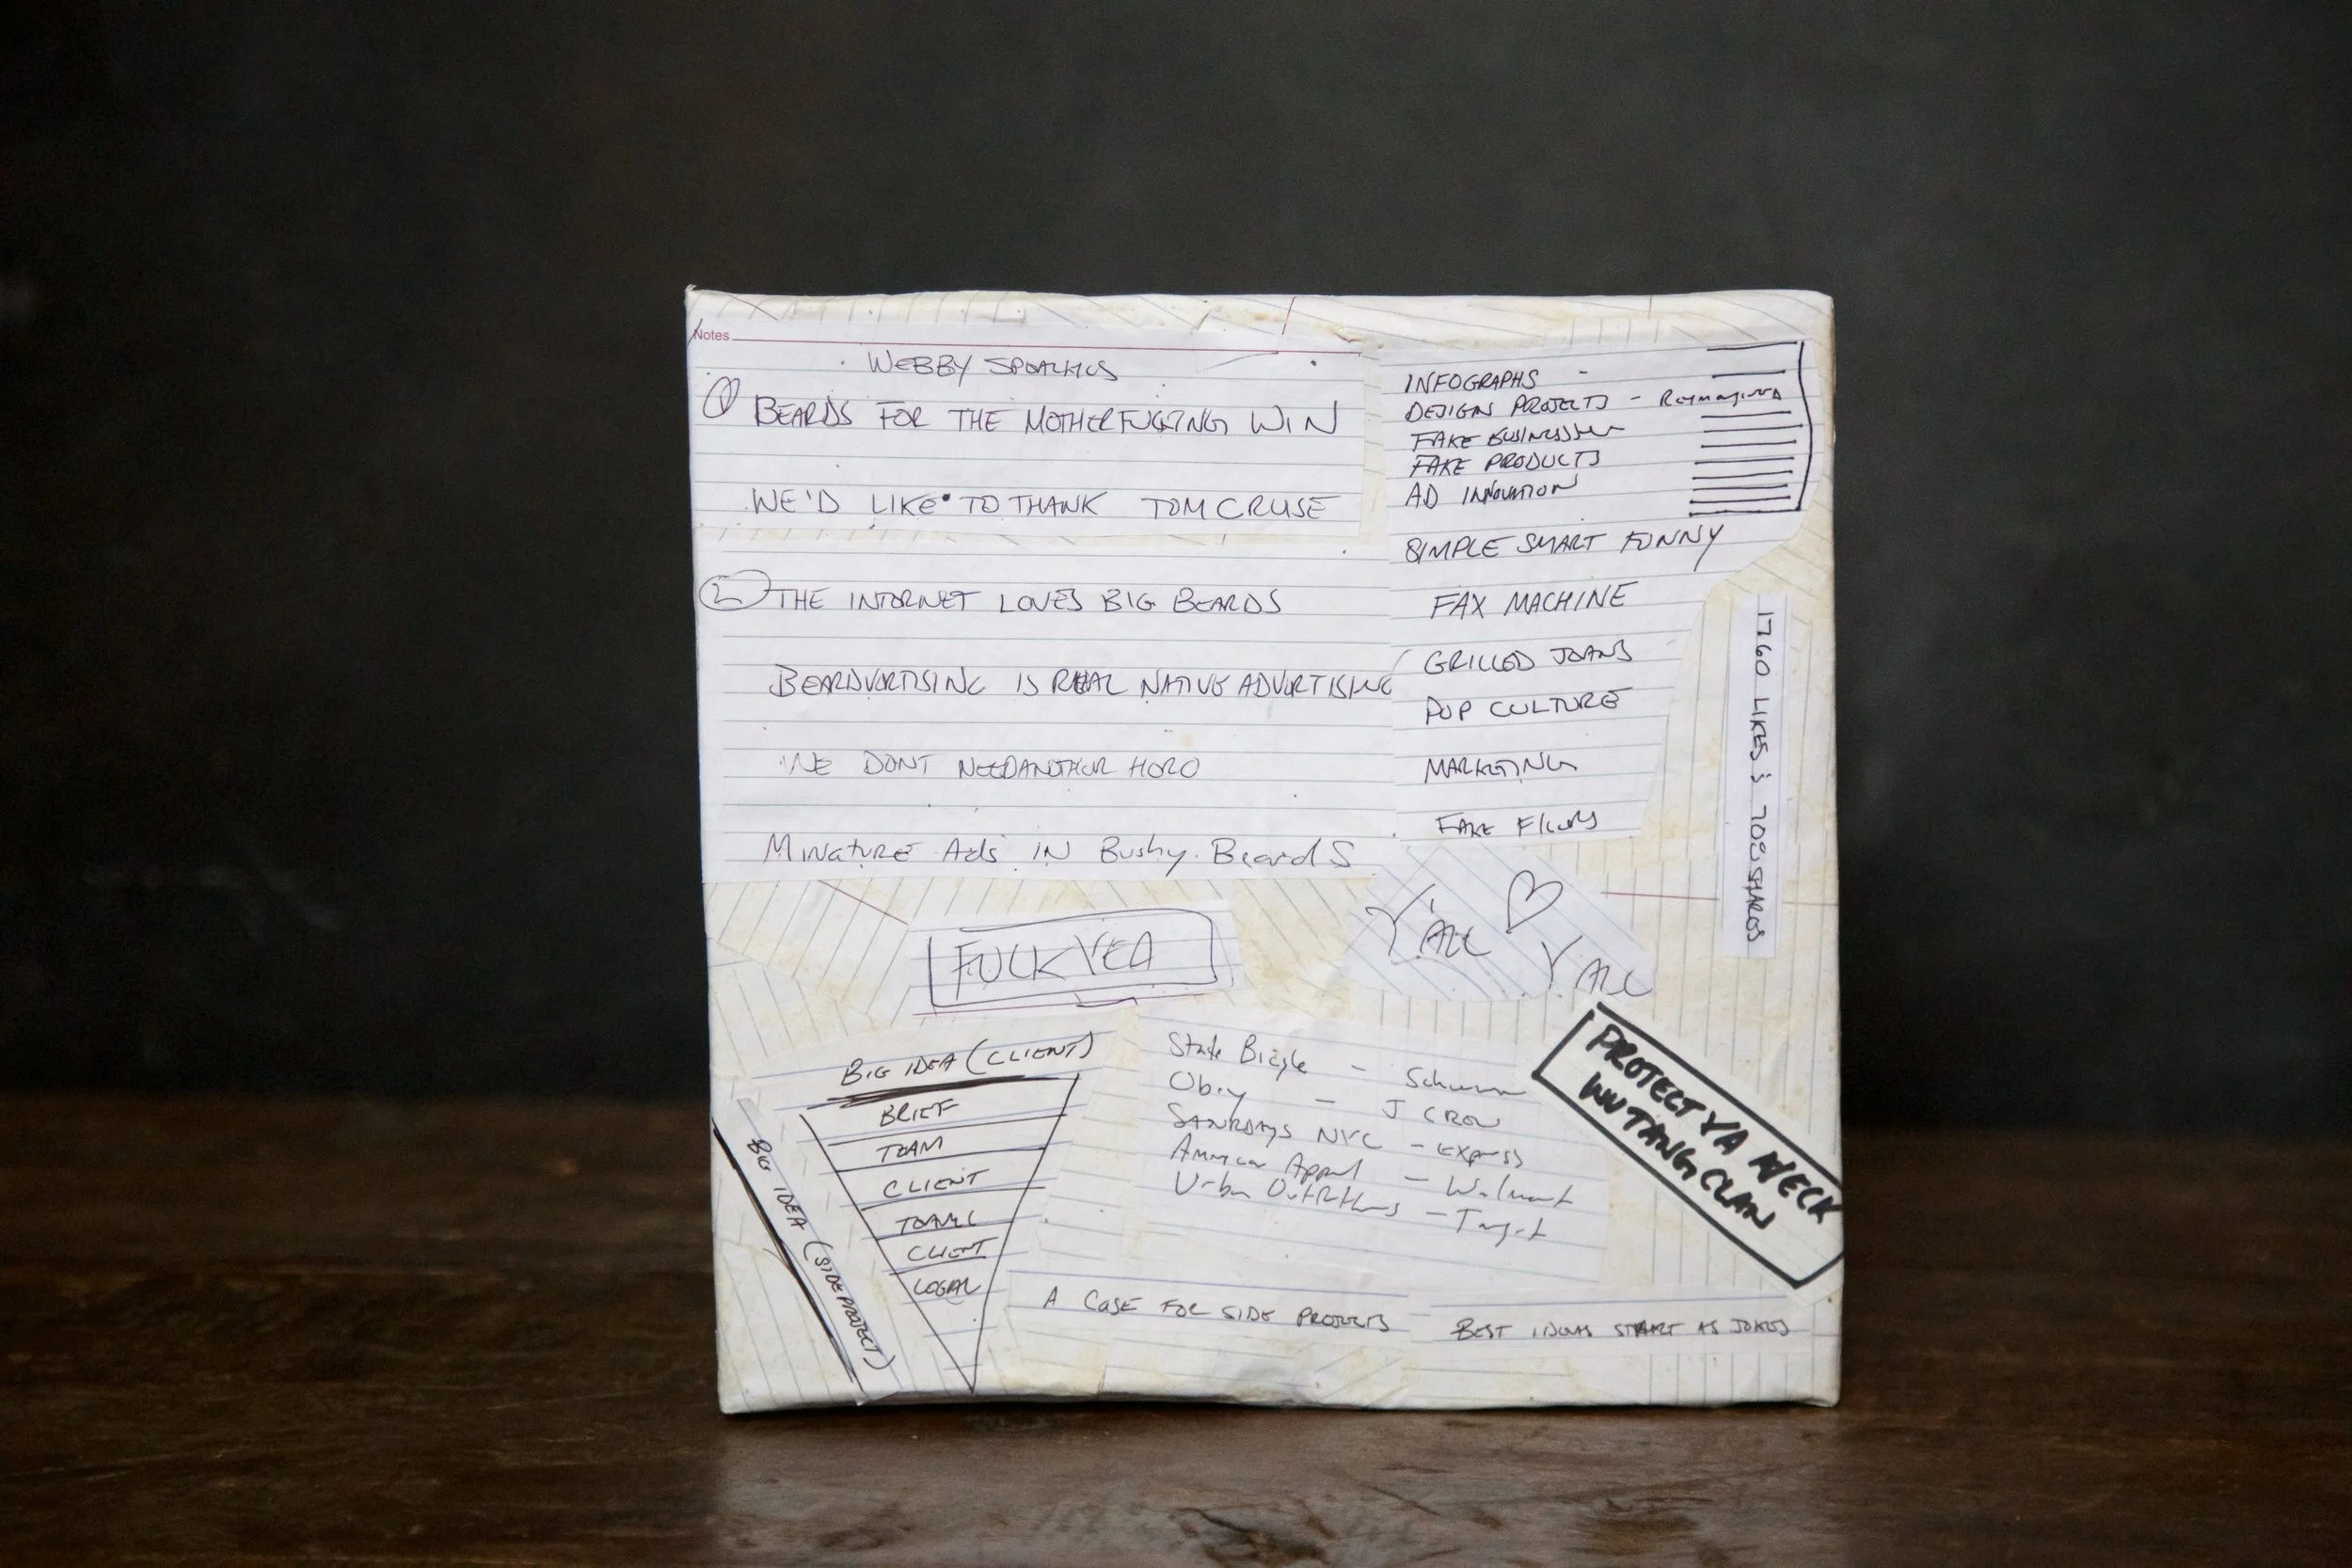 Notes
WEBBY
① BEARDS FOR THE MOTHERFUCKING WIN
WE'D LIKE TO THANK TOM CRUSE
② THE INTERNET LOVES BIG BEARDS
BEARDVERTISING IS REAL NATIVE ADVERTISING
WE DONT NEED ANOTHER HERO
MINATURE Ads IN Bushy Beards
INFOGRAPHS
DESIGN PROJECTS -
FAKE BUSINESSES
FAKE PRODUCTS
AD INNOVATION
SIMPLE SMART FUNNY
FAX MACHINE
GRILLED
POP CULTURE
MARKETING
FAKE FILMS
1760 LIKES & 702 SHARES
FUCK YEA
Y'ALL ♡
Y'ALL
BIG IDEA (CLIENT)
BRIEF
TEAM
CLIENT
CLIENT
LEGAL
BIG IDEA (SIDE PROJECT)
State Bicycle - Schwinn
Obey - J CREW
SATURDAYS NYC - EXPRESS
American Apparel - Walmart
Urban Outfitters - Target
PROTECT YA NECK
WU TANG CLAN
A CASE FOR SIDE PROJECTS
BEST IDEAS START AS JOKES